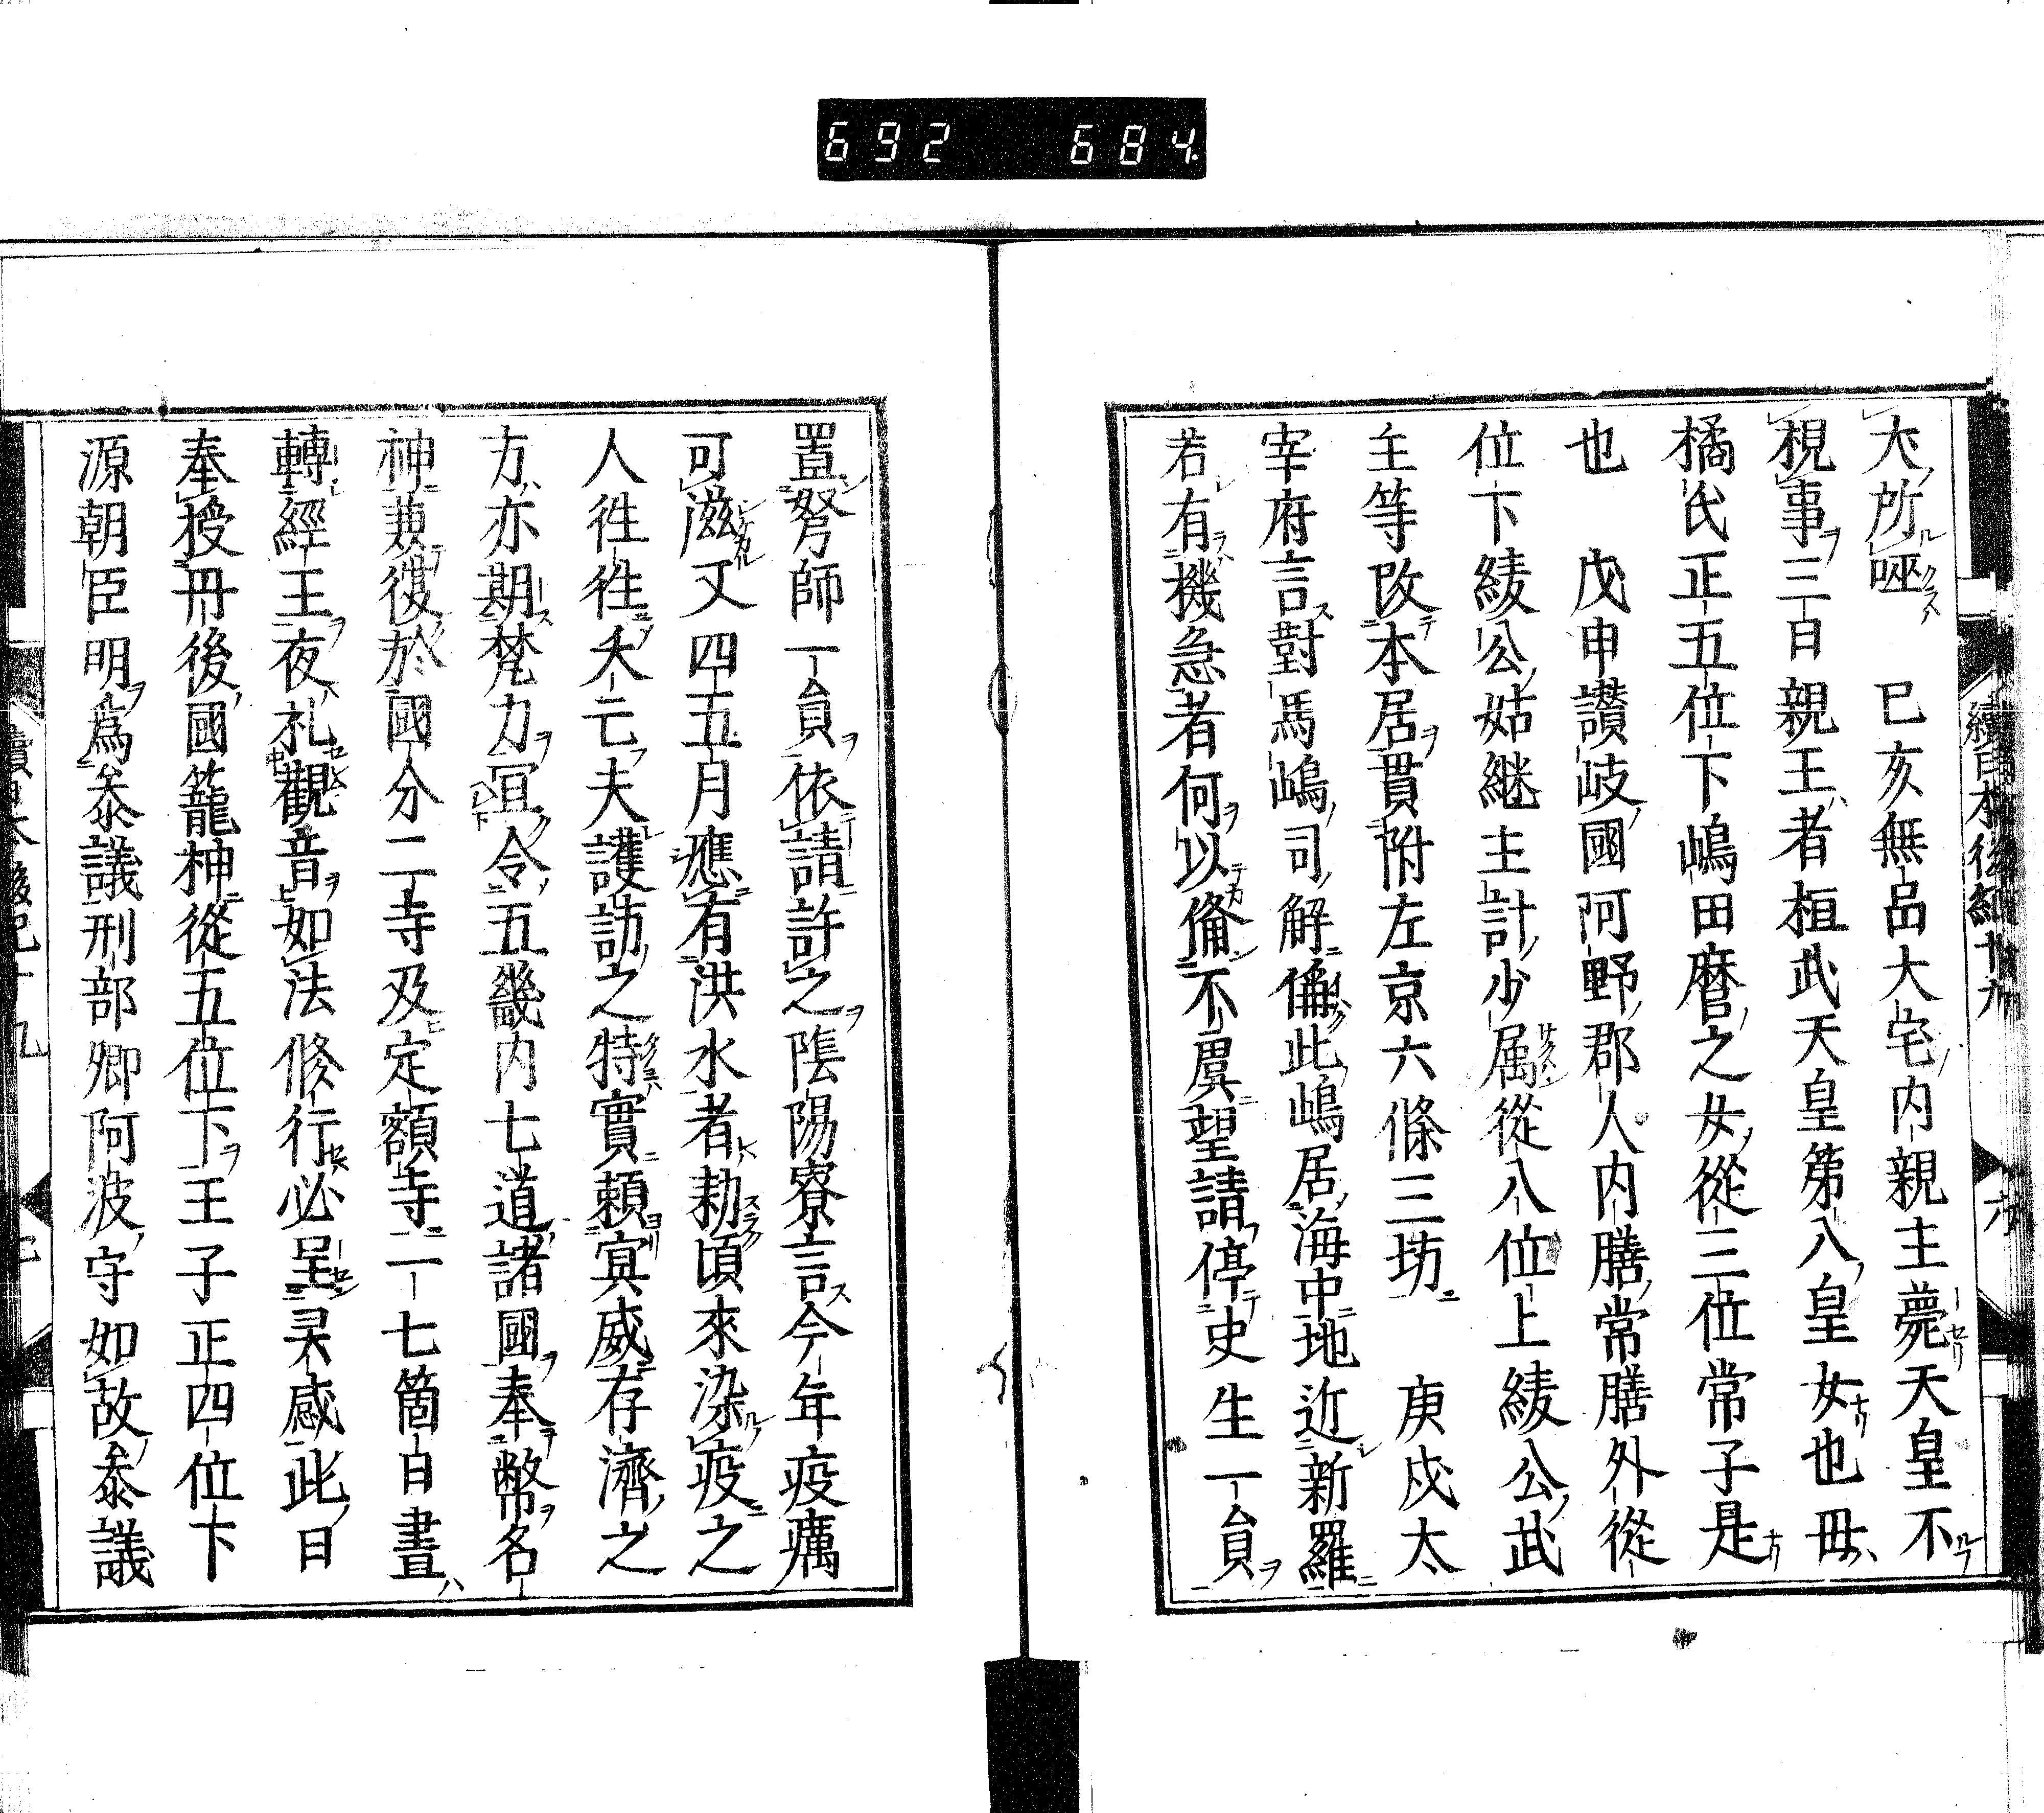 692 684
犬所噬 己亥無品大宅内親主薨天皇不
視事三日親王者桓武天皇第八皇女也母
橘氏正五位下嶋田麿之女從三位常子是
也 戊申讃岐國阿野郡人内膳常膳外從
位下綾公姑継主計少属從八位上綾公武
主等改本居貫附左京六條三坊 庚戌太
宰府言對馬嶋司解偁此嶋居海中地近新羅
若有機急者何以備不虞望請停史生一員
置弩師一員依請許之陰陽寮言今年疫癘
可滋又四五月應有洪水者勅頃來染疫之
人徃徃夭亡夫護訪之特實頼冥威存濟之
方亦期梵力冝令五畿内七道諸國奉幣名
神兼復於國分二寺及定額寺二七箇日晝
轉經王夜礼觀音如法修行必呈灵感此日
奉授丹後國籠神從五位下王子正四位下
源朝臣明爲叅議刑部卿阿波守如故叅議
續日本後紀十九 六
續日本後紀十九 七